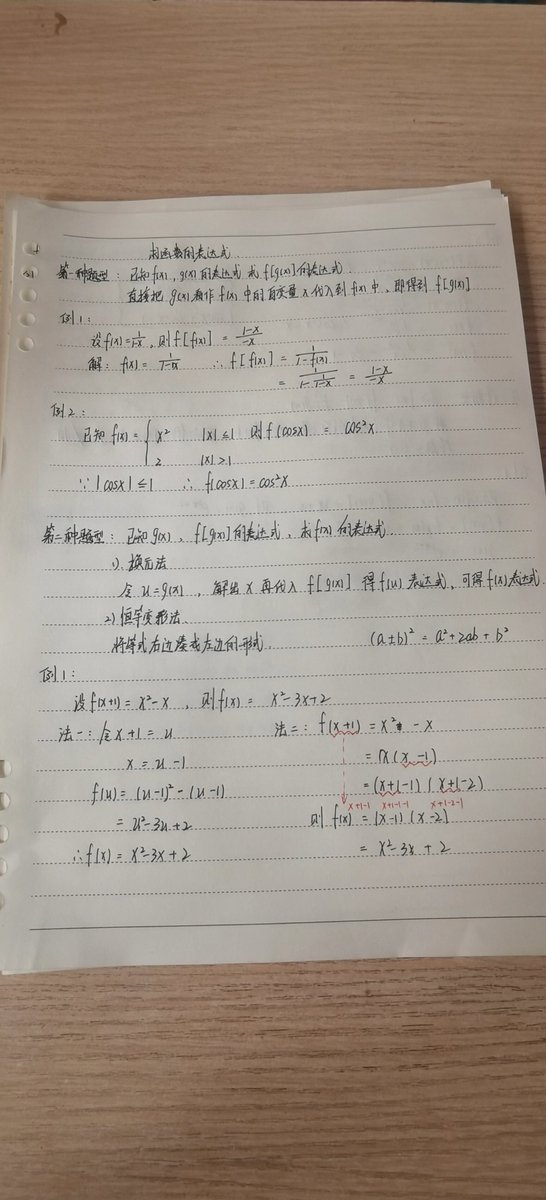 求函数的表达式
第一种题型：已知f(x), g(x)的表达式 求f[g(x)]的表达式.
直接把g(x)看作f(x)中的自变量x代入到f(x)中、即得到f[g(x)]
例1：
设f(x)=1/(1-x), 则f[f(x)] = (1-x)/(-x)
解：f(x)=1/(1-x) ∴f[f(x)] = 1/(1-f(x))
= 1/(1-1/(1-x)) = (1-x)/(-x)
例2：
已知f(x)={ x² |x|≤1 则f(cosx) = cos²x
2 |x|>1
∵|cosx|≤1 ∴f(cosx)=cos²x
第二种题型：已知g(x), f[g(x)]的表达式, 求f(x)的表达式.
1). 换元法
令u=g(x), 解出x再代入f[g(x)]得f(u)表达式, 可得f(x)表达式.
2) 恒等变形法.
将等式右边凑成左边的形式. (a±b)²=a²±2ab+b²
例1：
设f(x+1)=x²-x, 则f(x)= x²-3x+2
法一：令x+1=u 法二：f(x+1)=x²-x
x=u-1 =x(x-1)
f(u)=(u-1)²-(u-1) =(x+1-1)(x+1-2)
x+1-1 x+1-1-1 x+1-2-1
=u²-3u+2 则f(x)=(x-1)(x-2)
∴f(x)=x²-3x+2 =x²-3x+2